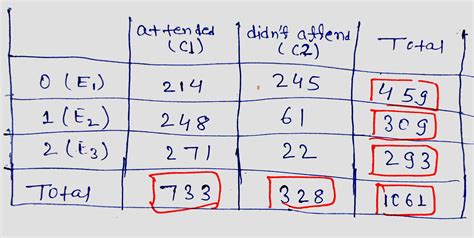 attended didn't attend Total
(C1) (C2)
0 (E1) 214 245 459
1 (E2) 248 61 309
2 (E3) 271 22 293
Total 733 328 1061